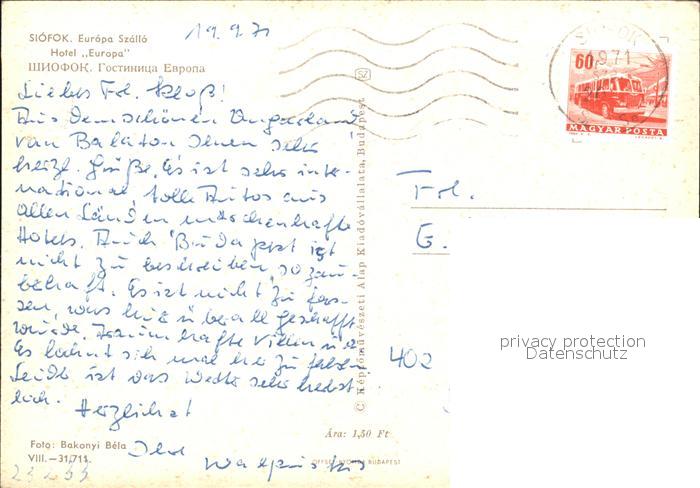 19.9.71
SIÓFOK. Európa Szálló
Hotel „Europa"
ШИОФОК. Гостиница Европа
Liebes Frl.
Aus dem schönen Ungarland
van Balaton Ihnen sehr
herzl. Grüße. Es ist sehr inter-
national, tolle Autos aus
allen Ländern märchenhafte
Hotels. Auch Budapest ist
nicht zu beschreiben, so zau-
behaft. Es ist nicht zu fas-
sen, was hier überall geschafft
wurde. Traumhafte Villen
Es lohnt sich mal her zu
Leider ist das Wetter sehr herbst
lich.
Herzlichst
Ihre
Foto: Bakonyi Béla
VIII.—31,711.
Ára: 1,50 Ft
BUDAPEST
SZ
© Képzőművészeti Alap Kiadóvállalata, Budapest
SIÓFOK
971
60f
MAGYAR POSTA
Frl.
E.
402
privacy protection
Datenschutz